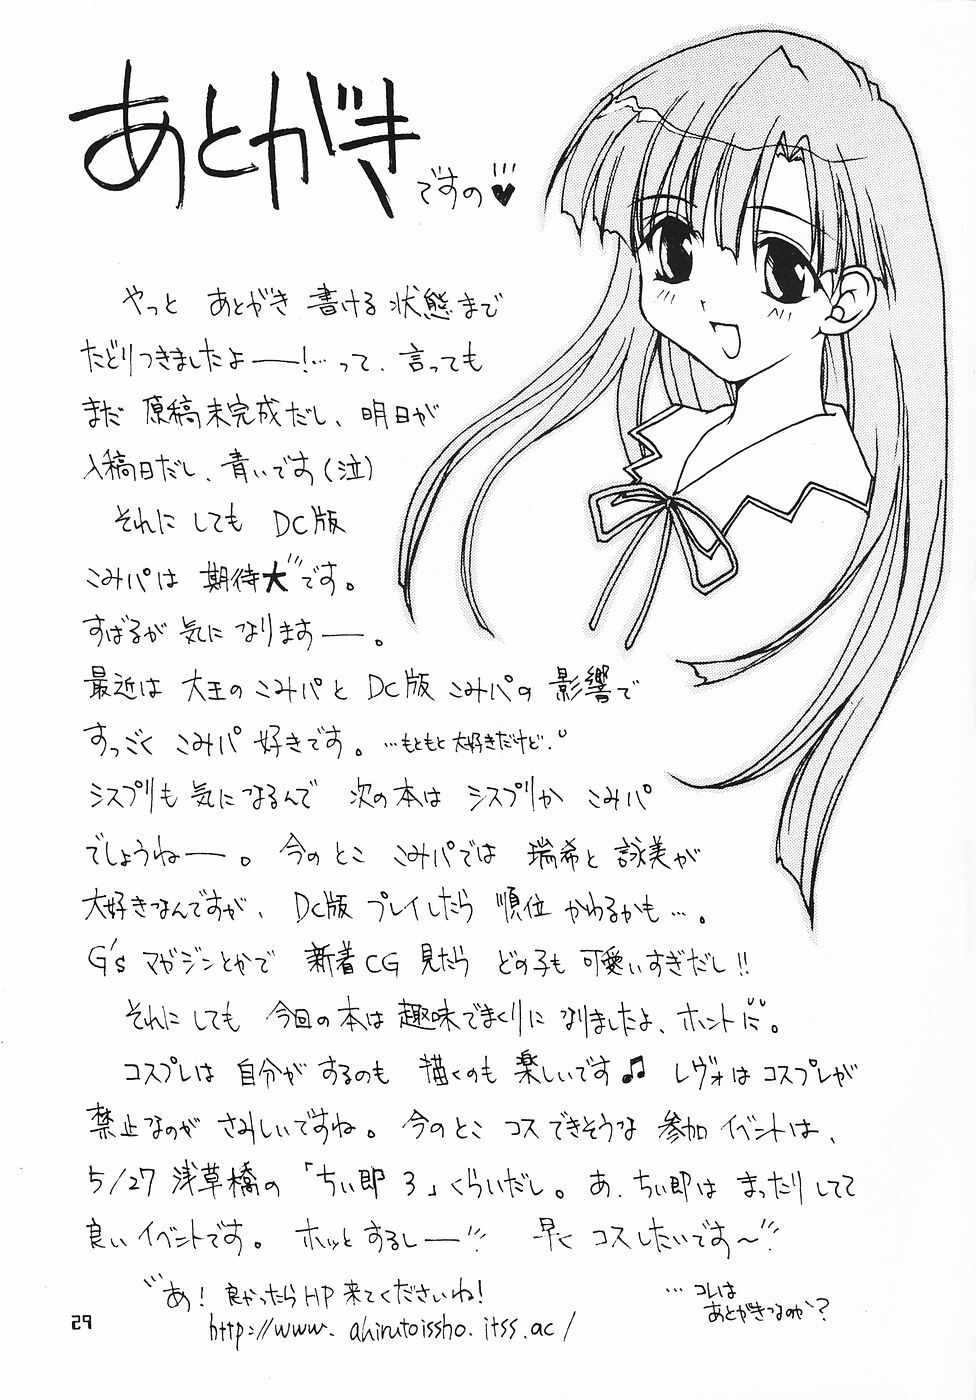 あとがき
ですの♥
やっと あとがき 書ける 状態まで
たどりつきましたよ――!…って、言っても
まだ 原稿未完成だし、明日が
入稿日だし、青いです(泣)
それにしても DC版
こみパは 期待大です。
すばるが 気になります――。
最近は 大王のこみパと DC版 こみパの 影響で
すっごく こみパ 好きです。…もともと大好きだけど。
シスプリも 気になるんで 次の本は シスプリか こみパ
でしょうね――。今のとこ こみパでは 瑞希と 詠美が
大好きなんですが、DC版 プレイしたら 順位 かわるかも…。
G'sマガジンとかで 新着CG 見たら どの子も 可愛いすぎだし!!
それにしても 今回の本は 趣味でまくりに なりましたよ、ホントに。
コスプレは 自分がするのも 描くのも 楽しいです♫ レヴォは コスプレが
禁止なのが さみしいですね。今のとこ コスできそうな 参加イベントは、
5/27 浅草橋の 「ちぃ即 3」くらいだし。あ、ちぃ即は まったりしてて
良いイベントです。ホッとするし―― 早く コスしたいです〜
あ! 良かったらHP 来てくださいね!
http://www.ahirutoissho.itss.ac/
…コレは
あとがきなのか?
29